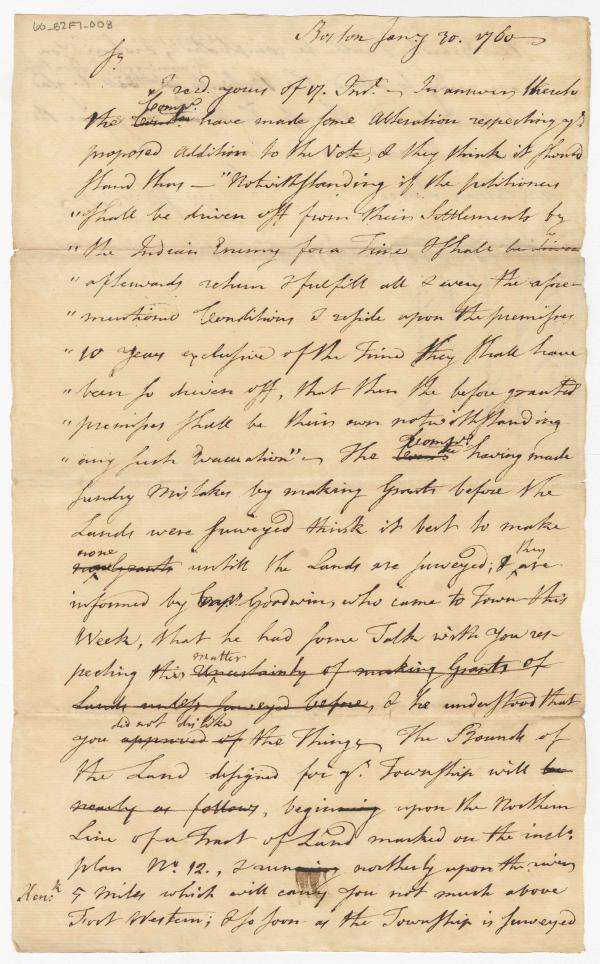 60_B2F7_008
Boston Jan.y 30. 1760
Sr.
I recd. yours of 17. Inst. In answer thereto
the Compy. have made some Alteration respecting yr.
proposed Addition to the Vote, & they think it should
stand thus — "Notwithstanding if the petitioners
"shall be driven off from their Settlements by
"the Indian Enemy for a Time & shall
"afterwards return & fulfill all & every the afore-
"mentiond Conditions & reside upon the premisses
"10 years exclusive of the Time they shall have
"been so driven off, that then the before granted
"premisses shall be their own notwithstanding
"any such Evacuation" The Compy. having made
sundry Mistakes by making Grants before the
Lands were surveyed think it best to make
none Grants untill the Lands are surveyed; & they are
informed by Goodwin, who came to Town this
Week, that he had some Talk with you res-
pecting this matter Uncertainty of making Grants of
Lands unless surveyed before, & he understood that
you did not dislike approved of the Thing. The Bounds of
the Land designed for yr. Township will be
nearly as follows, beginning upon the Northern
Line of a Tract of Land marked on the incl.
plan No. 12., & running northerly upon the river
Kenk. 5 Miles which will carry you not much above
Fort Western; & so soon as the Township is surveyed